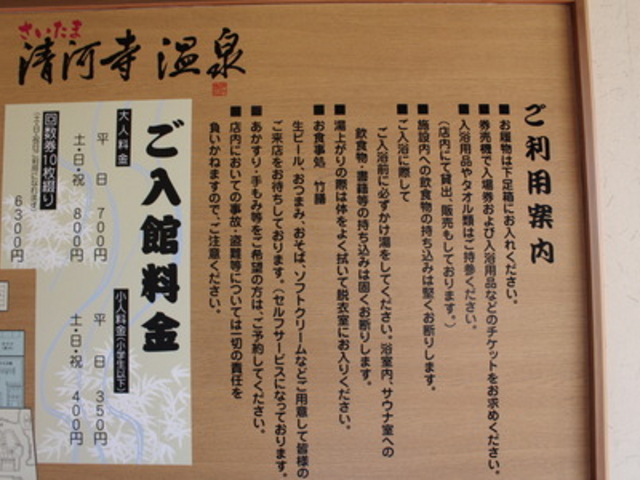 さいたま
清河寺温泉
ご利用案内
■お履物は下足箱にお入れください。
■券売機で入場券および入浴用品などのチケットをお求めください。
■入浴用品やタオル類はご持参ください。
(店内にて貸出、販売もしております。)
■施設内への飲食物の持ち込みは堅くお断りします。
■ご入浴に際して
ご入浴前に必ずかけ湯をしてください。浴室内、サウナ室への
飲食物・書籍等の持ち込みは固くお断りします。
■湯上がりの際は体をよく拭いて脱衣室にお入りください。
■お食事処 竹膳
生ビール、おつまみ、おそば、ソフトクリームなどご用意して皆様の
ご来店をお待ちしております。(セルフサービスになっております。)
■あかすり・手もみ等をご希望の方は、ご予約してください。
■店内においての事故・盗難等については一切の責任を
負いかねますので、ご注意ください。
ご入館料金
大人料金
平日 700円
土・日・祝 800円
回数券10枚綴り
6300円
小人料金(小学生以下)
平日 350円
土・日・祝 400円